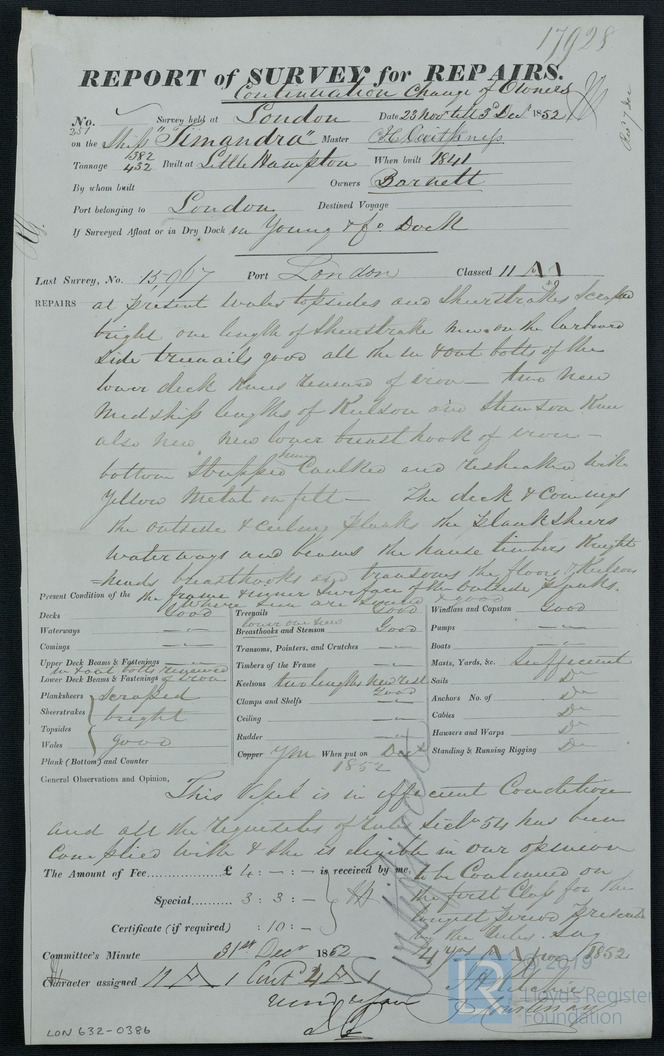 17928
REPORT of SURVEY for REPAIRS.
Continuation Change of Owners
No. Survey held at London Date 23 Nov till 3d Decr 1852
351
on the Ship "Timandra" Master
Tonnage 382 432 Built at Little Hampton When built 1841
By whom built Owners Barnett
Port belonging to London Destined Voyage
If Surveyed Afloat or in Dry Dock in Young & Co Dock
Last Survey, No. 15967 Port London Classed 11 A1
REPAIRS at present wales topsides and Sheerstrakes Scraped
bright one length of Sheerstrake new on the larboard
side treenails good all the in & out bolts of the
lower deck knees renewed of iron — two new
Midship lengths of Keelson and Stemson Knee
also new new lower breasthook of iron —
bottom Stripped Caulked and resheathed with
Yellow Metal on felt — The deck & comings
the outside & ceiling planks the planksheers
waterways and beams the hause timbers Knight
=heads breasthooks and transoms the floors & Keelson
the frame & inner surface of the outside planks.
where seen are sound & good
Present Condition of the
Decks Good
Waterways
Comings
Upper Deck Beams & Fastenings
in & out bolts renewed
Lower Deck Beams & Fastenings of iron
Planksheers scraped
Sheerstrakes bright
Topsides
Wales good
Plank (Bottom) and Counter
Treenails Good
lower one new
Breasthooks and Stemson Good
Transoms, Pointers, and Crutches
Timbers of the Frame
Keelsons two lengths new rest
Good
Clamps and Shelfs
Ceiling
Rudder
Copper YM When put on Dect
1852
Windlass and Capstan Good
Pumps
Boats
Masts, Yards, &c. Sufficient
Sails Do
Anchors No. of Do
Cables Do
Hawsers and Warps Do
Standing & Running Rigging Do
General Observations and Opinion,
This Vessel is in efficient Condition
and all the requisites of Rules Sectn 54 has been
complied with & she is eligible in our opinion
to be Continued on
the first Class for the
longest Period
by the rules. say
The Amount of Fee £ 4 : - : - is received by me,
Special 3 : 3 : -
Certificate (if required) : 10 : -
Committee's Minute 31st Decr 1852
Character assigned 11 A 1 Contd 4 A 1
© 2019
Lloyd's Register
Foundation
LON 632-0386